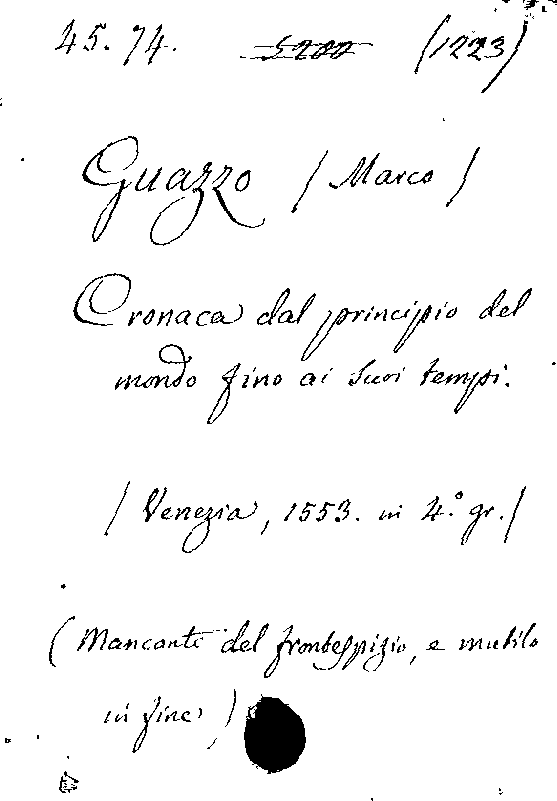 45. 74. 5200 (1223)
Guazzo / Marco /
Cronaca dal principio del
mondo fino ai suoi tempi.
/ Venezia, 1553. in 4.° gr. /
(Mancante del frontespizio, e mutilo
in fine)